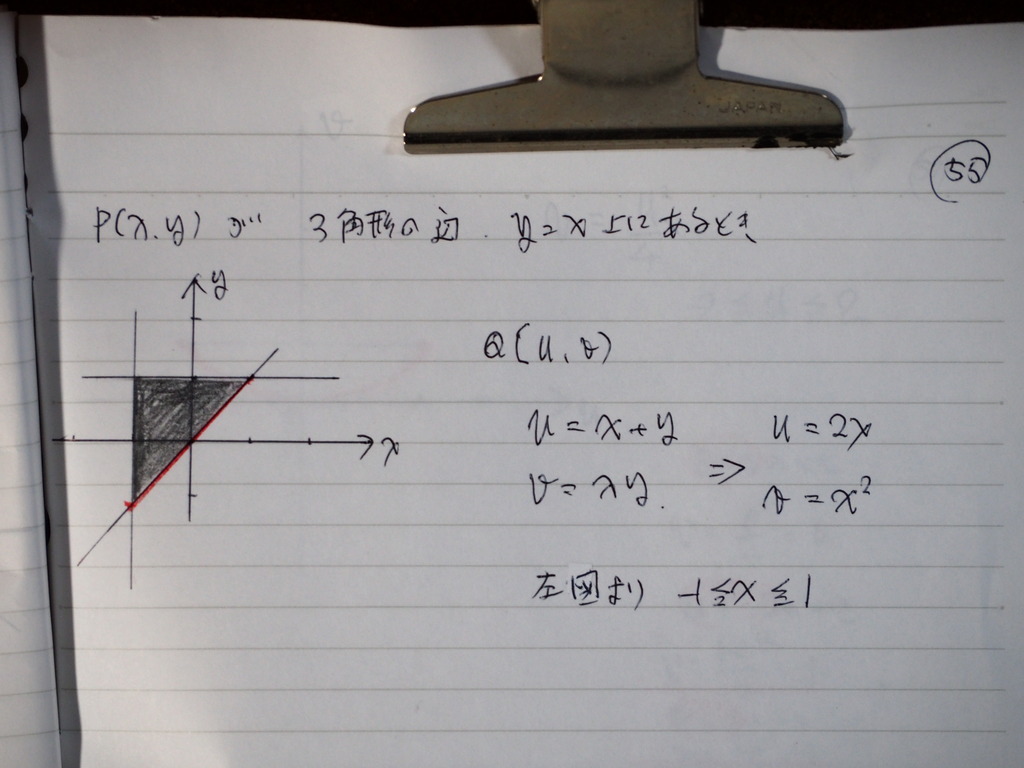 JAPAN
55
P(x,y) が 3角形の辺. y=x 上にあるとき
y
x
Q(u,v)
u=x+y
v=xy.
⇒
u=2x
v=x²
左図より -1≦x≦1